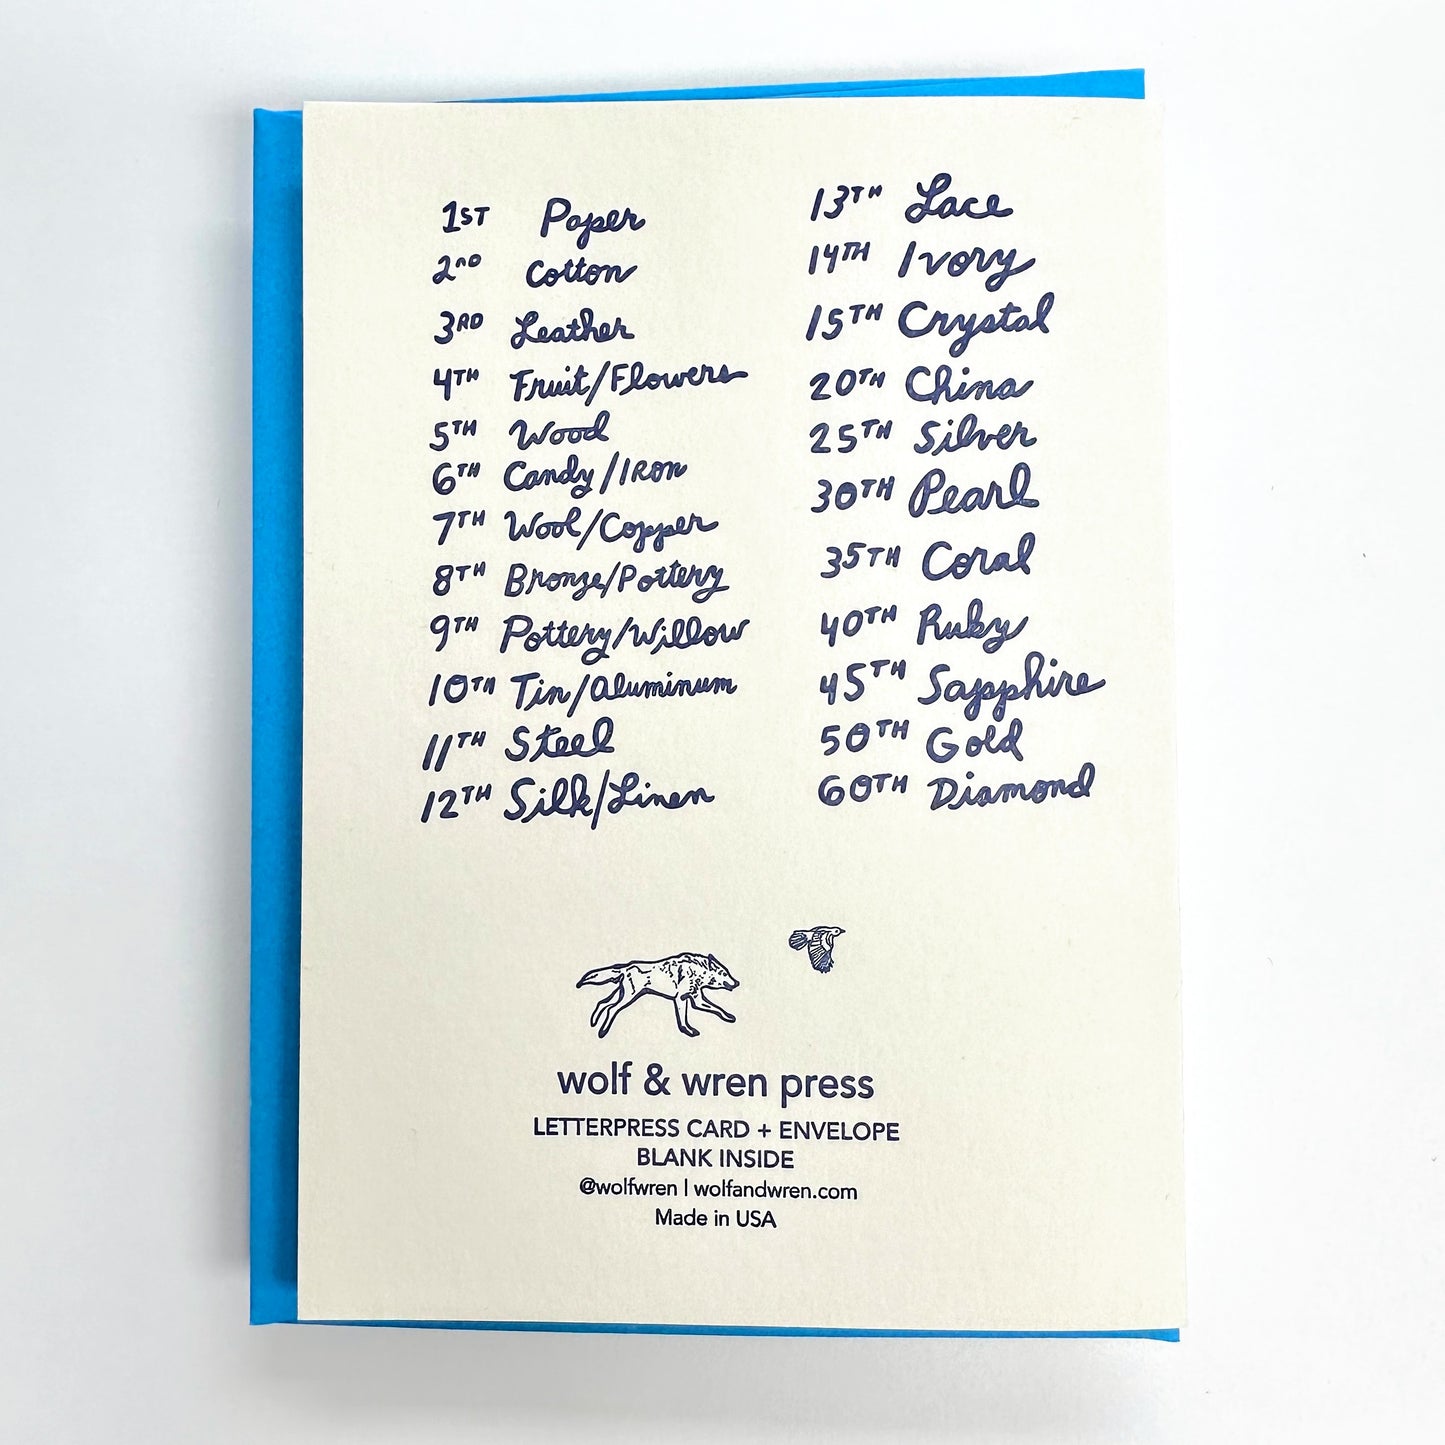 1ST Paper
2ND Cotton
3RD Leather
4TH Fruit/Flowers
5TH Wood
6TH Candy/IRon
7TH Wool/Copper
8TH Bronze/Pottery
9TH Pottery/Willow
10TH Tin/Aluminum
11TH Steel
12TH Silk/Linen
13TH Lace
14TH Ivory
15TH Crystal
20TH China
25TH Silver
30TH Pearl
35TH Coral
40TH Ruby
45TH Sapphire
50TH Gold
60TH Diamond
wolf & wren press
LETTERPRESS CARD + ENVELOPE
BLANK INSIDE
@wolfwren | wolfandwren.com
Made in USA